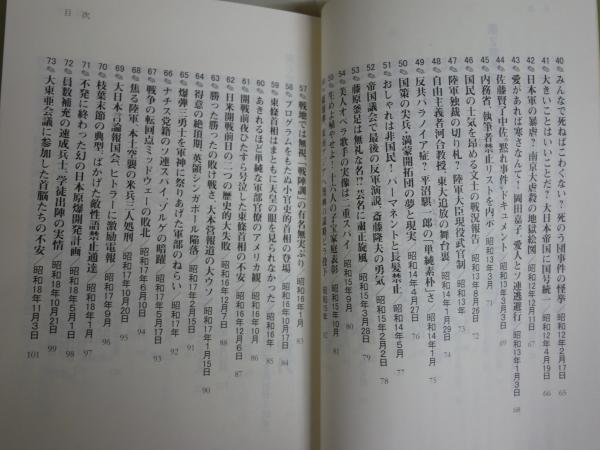 40 みんなで死ねばこわくない？死のう団事件の怪挙／昭和12年2月17日 65
41 大きいことはいいことだ？大日本帝国に国号統一／昭和12年4月19日 66
42 日本軍の暴虐？南京大虐殺の地獄絵図／昭和12年12月11日 67
43 愛があれば寒さなんて！岡田嘉子、愛人とソ連逃避行／昭和13年1月3日 68
44 佐藤賢了中佐、“黙れ事件”ドキュメント／昭和13年3月3日 69
45 内務省、執筆者禁止リストを内示／昭和13年3月
46 国民の士気を昂める文士の戦況報告／昭和13年8月26日 72
47 陸軍独裁の切り札？陸軍大臣現役武官制／昭和13年
48 自由主義者河合教授、東大追放の舞台裏／昭和14年1月 74
49 反共パラノイア症？平沼騏一郎の“単純素朴”さ／昭和14年1月 75
50 国策の尖兵・満蒙開拓団の夢と現実／昭和14年5月 76
51 おしゃれは非国民！パーマネントと長髪禁止／昭和14年 77
52 帝国議会で最後の反軍演説、斎藤隆夫の勇気／昭和15年2月2日 78
53 藤原釜足は無礼な名!?芸名に粛正旋風／昭和15年3月28日 79
54 美人オペラ歌手の実像は二重スパイ／昭和15年9月 80
57 戦地では無視「戦陣訓」の有名無実ぶり／昭和16年1月 83
58 プログラムをもたぬ小官吏的首相の登場／昭和16年10月17日 84
59 東條首相はまともに天皇の眼を見られなかった／昭和16年 85
60 あきれるほど単純な軍部官僚のアメリカ観／昭和16年 86
61 開戦前夜ひたすら号泣した東條首相の不安／昭和16年12月6日
62 日米開戦前日の二つの歴史的大失敗／昭和16年12月7日 88
63 勝った勝ったの敗け戦さ、大本営報道の大ウソ／昭和17年1月15日
64 得意の絶頂期、英領シンガポール陥落／昭和17年2月15日 90
65 爆弾三勇士を軍神に祭りあげた軍部のねらい／昭和17年 91
66 ナチス党籍のソ連スパイ、ゾルゲの暗躍／昭和17年5月 92
67 戦争の転回点ミッドウェーの敗北／昭和17年6月5日 93
68 焦る陸軍、本土空襲の米兵三人処刑／昭和17年10月20日 94
69 大日本言論報国会、ヒトラーに激励電報／昭和17年 95
70 枝葉末節の典型、ばかげた敵性語禁止通達／昭和18年 96
71 不発に終わった幻の日本原爆開発計画／昭和18年5月1日 97
72 員数補充の速成兵士、学徒出陣の実情／昭和18年10月21日 99
73 大東亜会議に参加した首脳たちの不安／昭和18年11月3日 101
目次